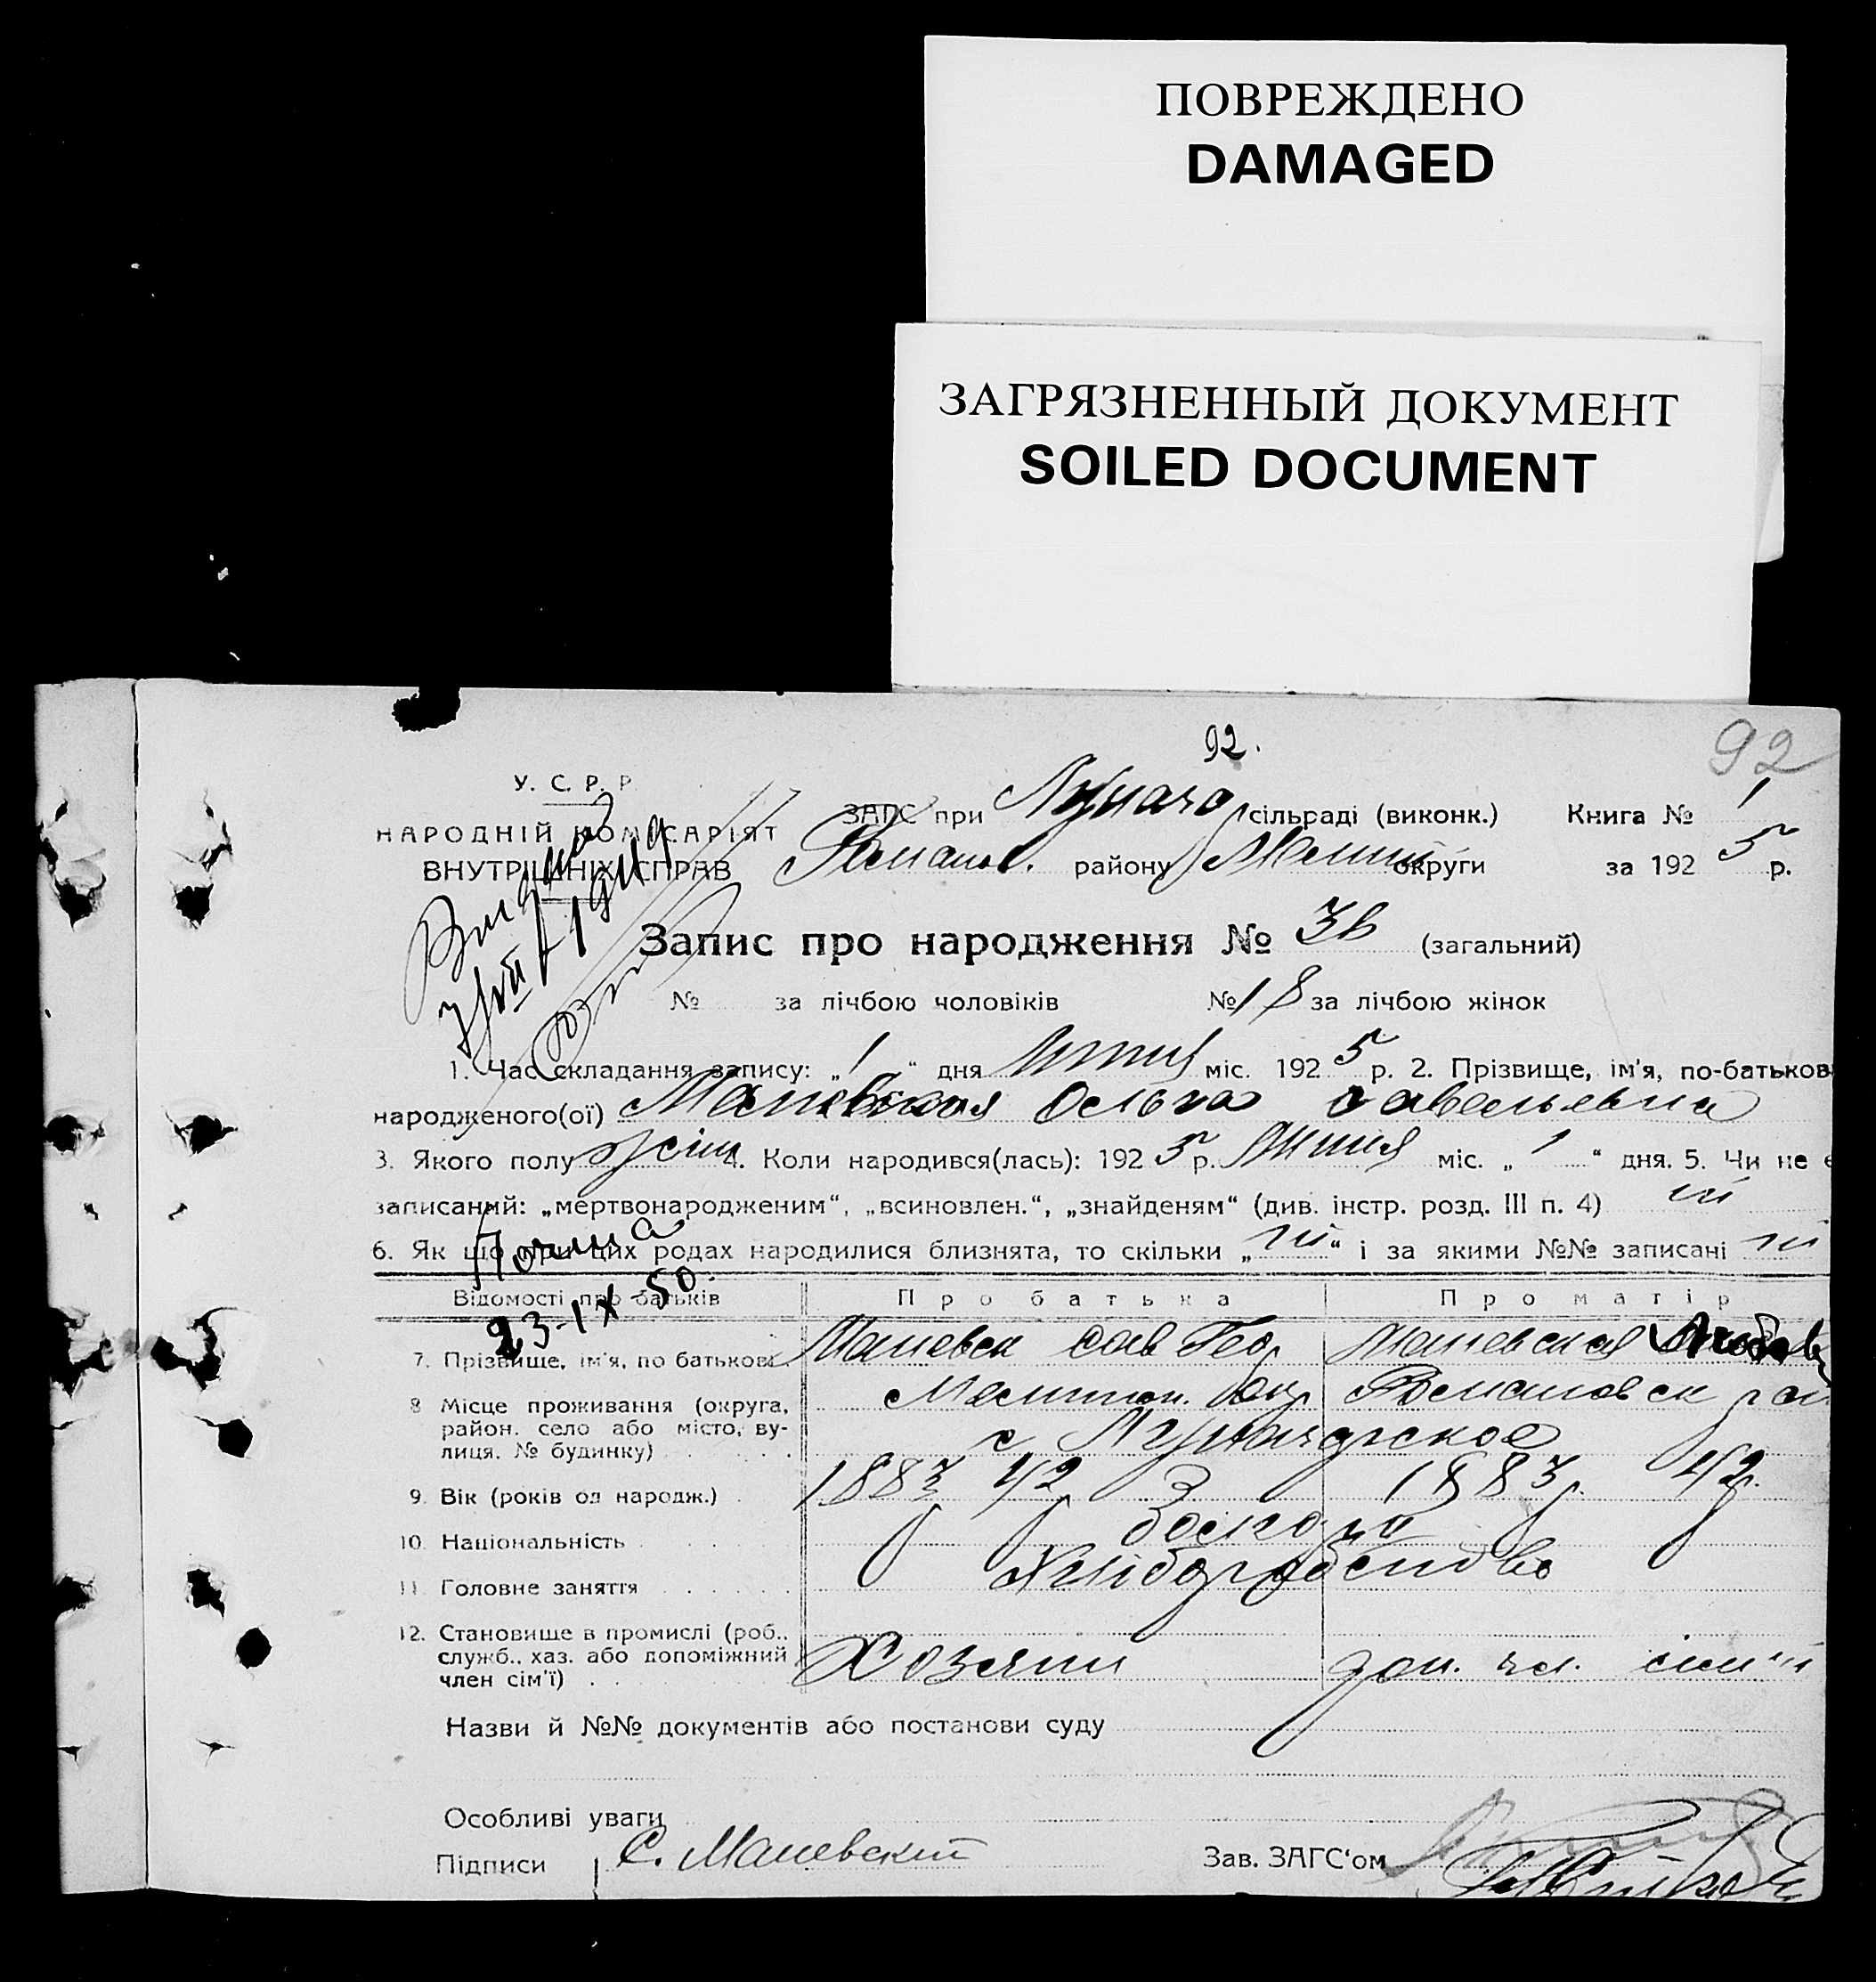 ПОВРЕЖДЕНО
DAMAGED
ЗАГРЯЗНЕННЫЙ ДОКУМЕНТ
SOILED DOCUMENT
92.
92
У. С. Р. Р.
НАРОДНІЙ КОМІСАРІЯТ
ВНУТРІШНІХ СПРАВ
ЗАГС при сільраді (виконк.) Книга № 1
Романов. району Меліт округи за 1925 р.
Запис про народження № (загальний)
№ за лічбою чоловіків № 18 за лічбою жінок
1. Час складання запису: „1“ дня міс. 1925 р. 2. Прізвище, ім'я, по-батьков
народженого(ої) Маневская Ольга Савельевна
3. Якого полу жін 4. Коли народився(лась): 1925 р. міс. „1“ дня. 5. Чи не є
записаний: „мертвонародженим“, „всиновлен.“, „знайденям“ (див. інстр. розд. III п. 4) ні
6. Як що при цих родах народилися близнята, то скільки „ні“ і за якими №№ записані ні
23-IX-50.
Відомості про батьків Про батька Про матір
7. Прізвище, ім'я, по батькові Маневск Сав Гео Маневская
8 Місце проживання (округа, район, село або місто, ву-лиця, № будинку) Мелитоп. окр Романовск рай
с
9. Вік (років од народж.) 1883 42 1883 42
10. Національність
11. Головне заняття Хліборобство
12. Становище в промислі (роб., служб., хаз. або допоміжний член сім'ї) Хозяин доп. чл. сім'ї
Назви й №№ документів або постанови суду
Особливі уваги
Підписи С. Маневский Зав. ЗАГС'ом